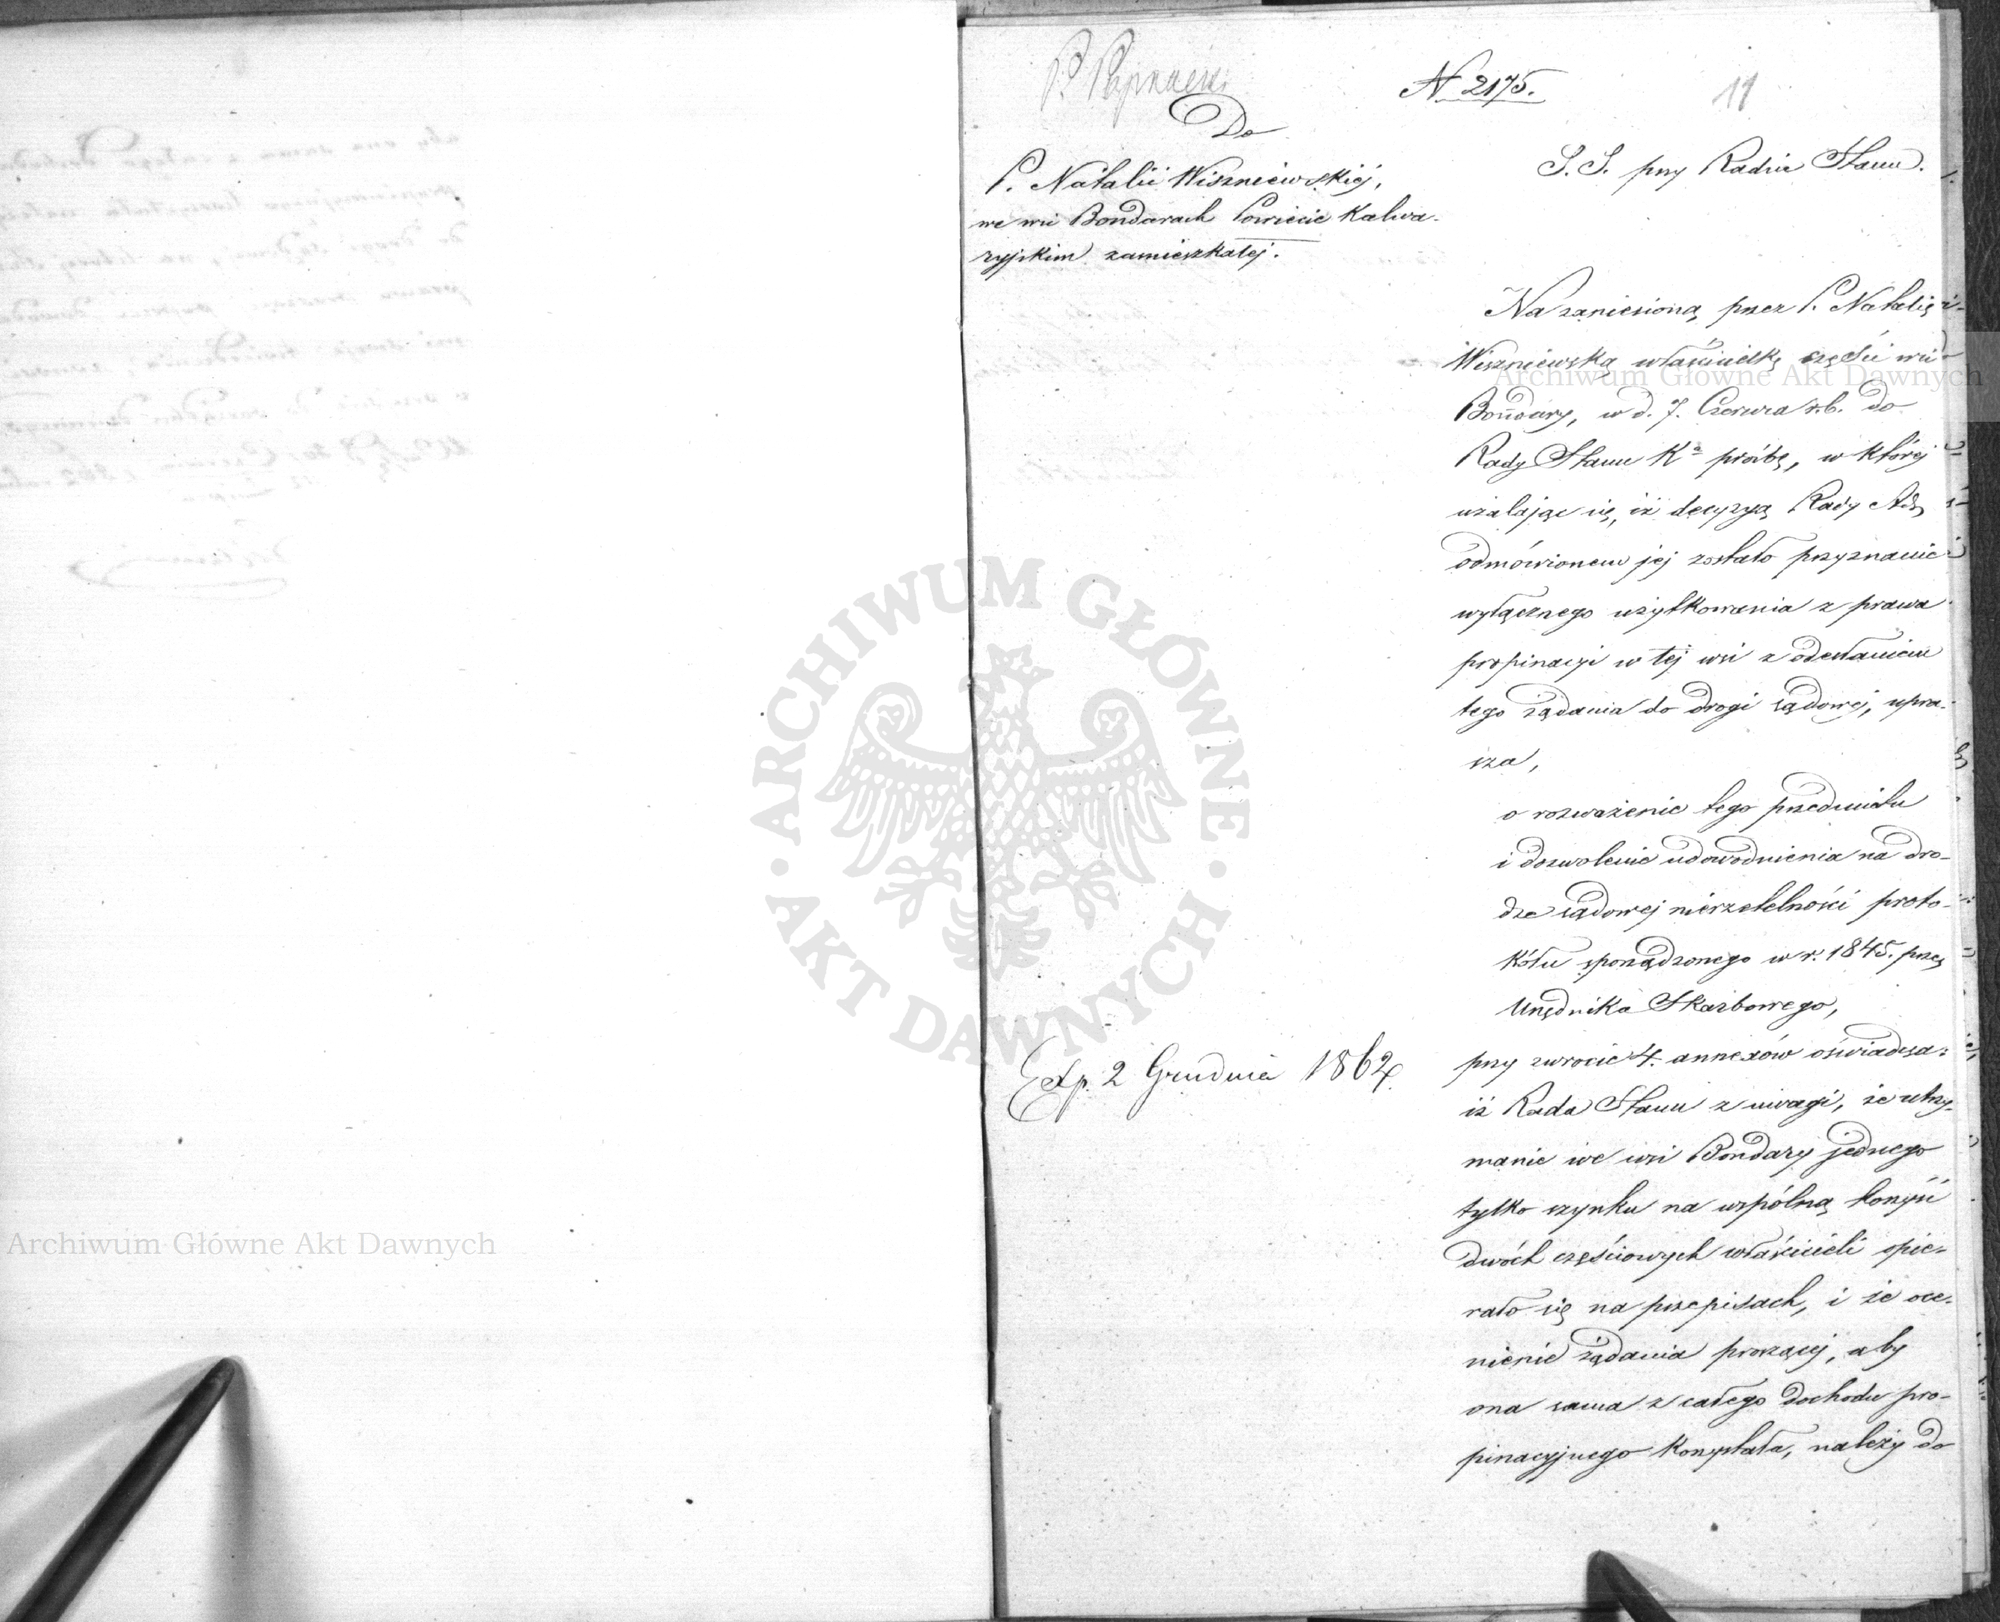 N 2175.
11
Do
P. Natalii Wiszniewskiéj,
we wsi Bondarach Powiecie Kalwa-
ryjskim zamieszkałej.
S. S. przy Radzie Stanu.
Na zaniesioną przez P. Natalię
Wiszniewską właścicielkę części wsi
Bondary, w d. 7. Czerwca r.b. do
Rady Stanu K prośbę, w któréj
użalając się, iż decyzyą Rady Adm
odmówionem jéj zostało przyznanie
wyłącznego użytkowania z prawa
propinacyi w téj wsi z odesłaniem
tego żądania do drogi sądowéj, upra-
sza,
o rozważenie tego przedmiotu
i dozwolenie udowodnienia na dro-
dze sądowej nierzetelności proto-
kółu sporządzonego w r. 1845. przez
Urzędnika Skarbowego,
przy zwrocie 4. annexów oświadcza:
iż Rada Stanu z uwagi, że utrzy-
manie we wsi Bondary jednego
tylko szynku na wspólną korzyść
dwóch częściowych właścicieli opie-
rało się na przepisach, i że oce-
nienie żądania proszącéj, aby
ona sama z całego dochodu pro-
pinacyjnego korzystała, należy do
Exp. 2 Grudnia 1862.
Archiwum Główne Akt Dawnych
Archiwum Główne Akt Dawnych
ARCHIWUM GŁÓWNE
AKT DAWNYCH